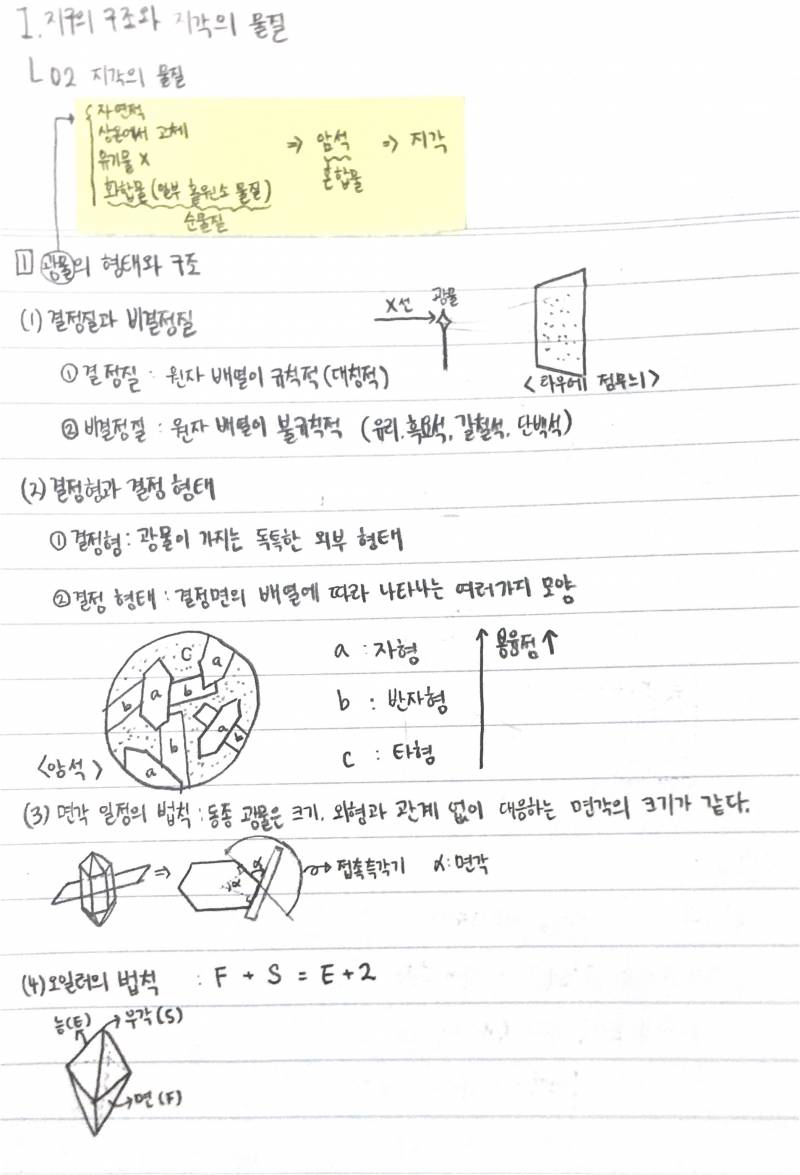 I. 지구의 구조와 지각의 물질
L 02 지각의 물질
자연적
상온에서 고체
유기물 X
화합물 (일부 홑원소 물질)
순물질
⇒ 암석 ⇒ 지각
혼합물
1 광물의 형태와 구조
(1) 결정질과 비결정질
X선 광물
① 결정질 : 원자 배열이 규칙적 (대칭적)
< 라우에 점무늬 >
② 비결정질 : 원자 배열이 불규칙적 (유리, 흑요석, 갈철석, 단백석)
(2) 결정형과 결정 형태
① 결정형 : 광물이 가지는 독특한 외부 형태
② 결정 형태 : 결정면의 배열에 따라 나타나는 여러가지 모양
c a
b a b
b a b
a
<암석>
a : 자형
b : 반자형
c : 타형
↑ 용융점 ↑
(3) 면각 일정의 법칙 : 동종 광물은 크기, 외형과 관계 없이 대응하는 면각의 크기가 같다.
⇒ α α → 접촉측각기 α : 면각
(4) 오일러의 법칙 : F + S = E + 2
능(E) → 우각(S)
→ 면 (F)